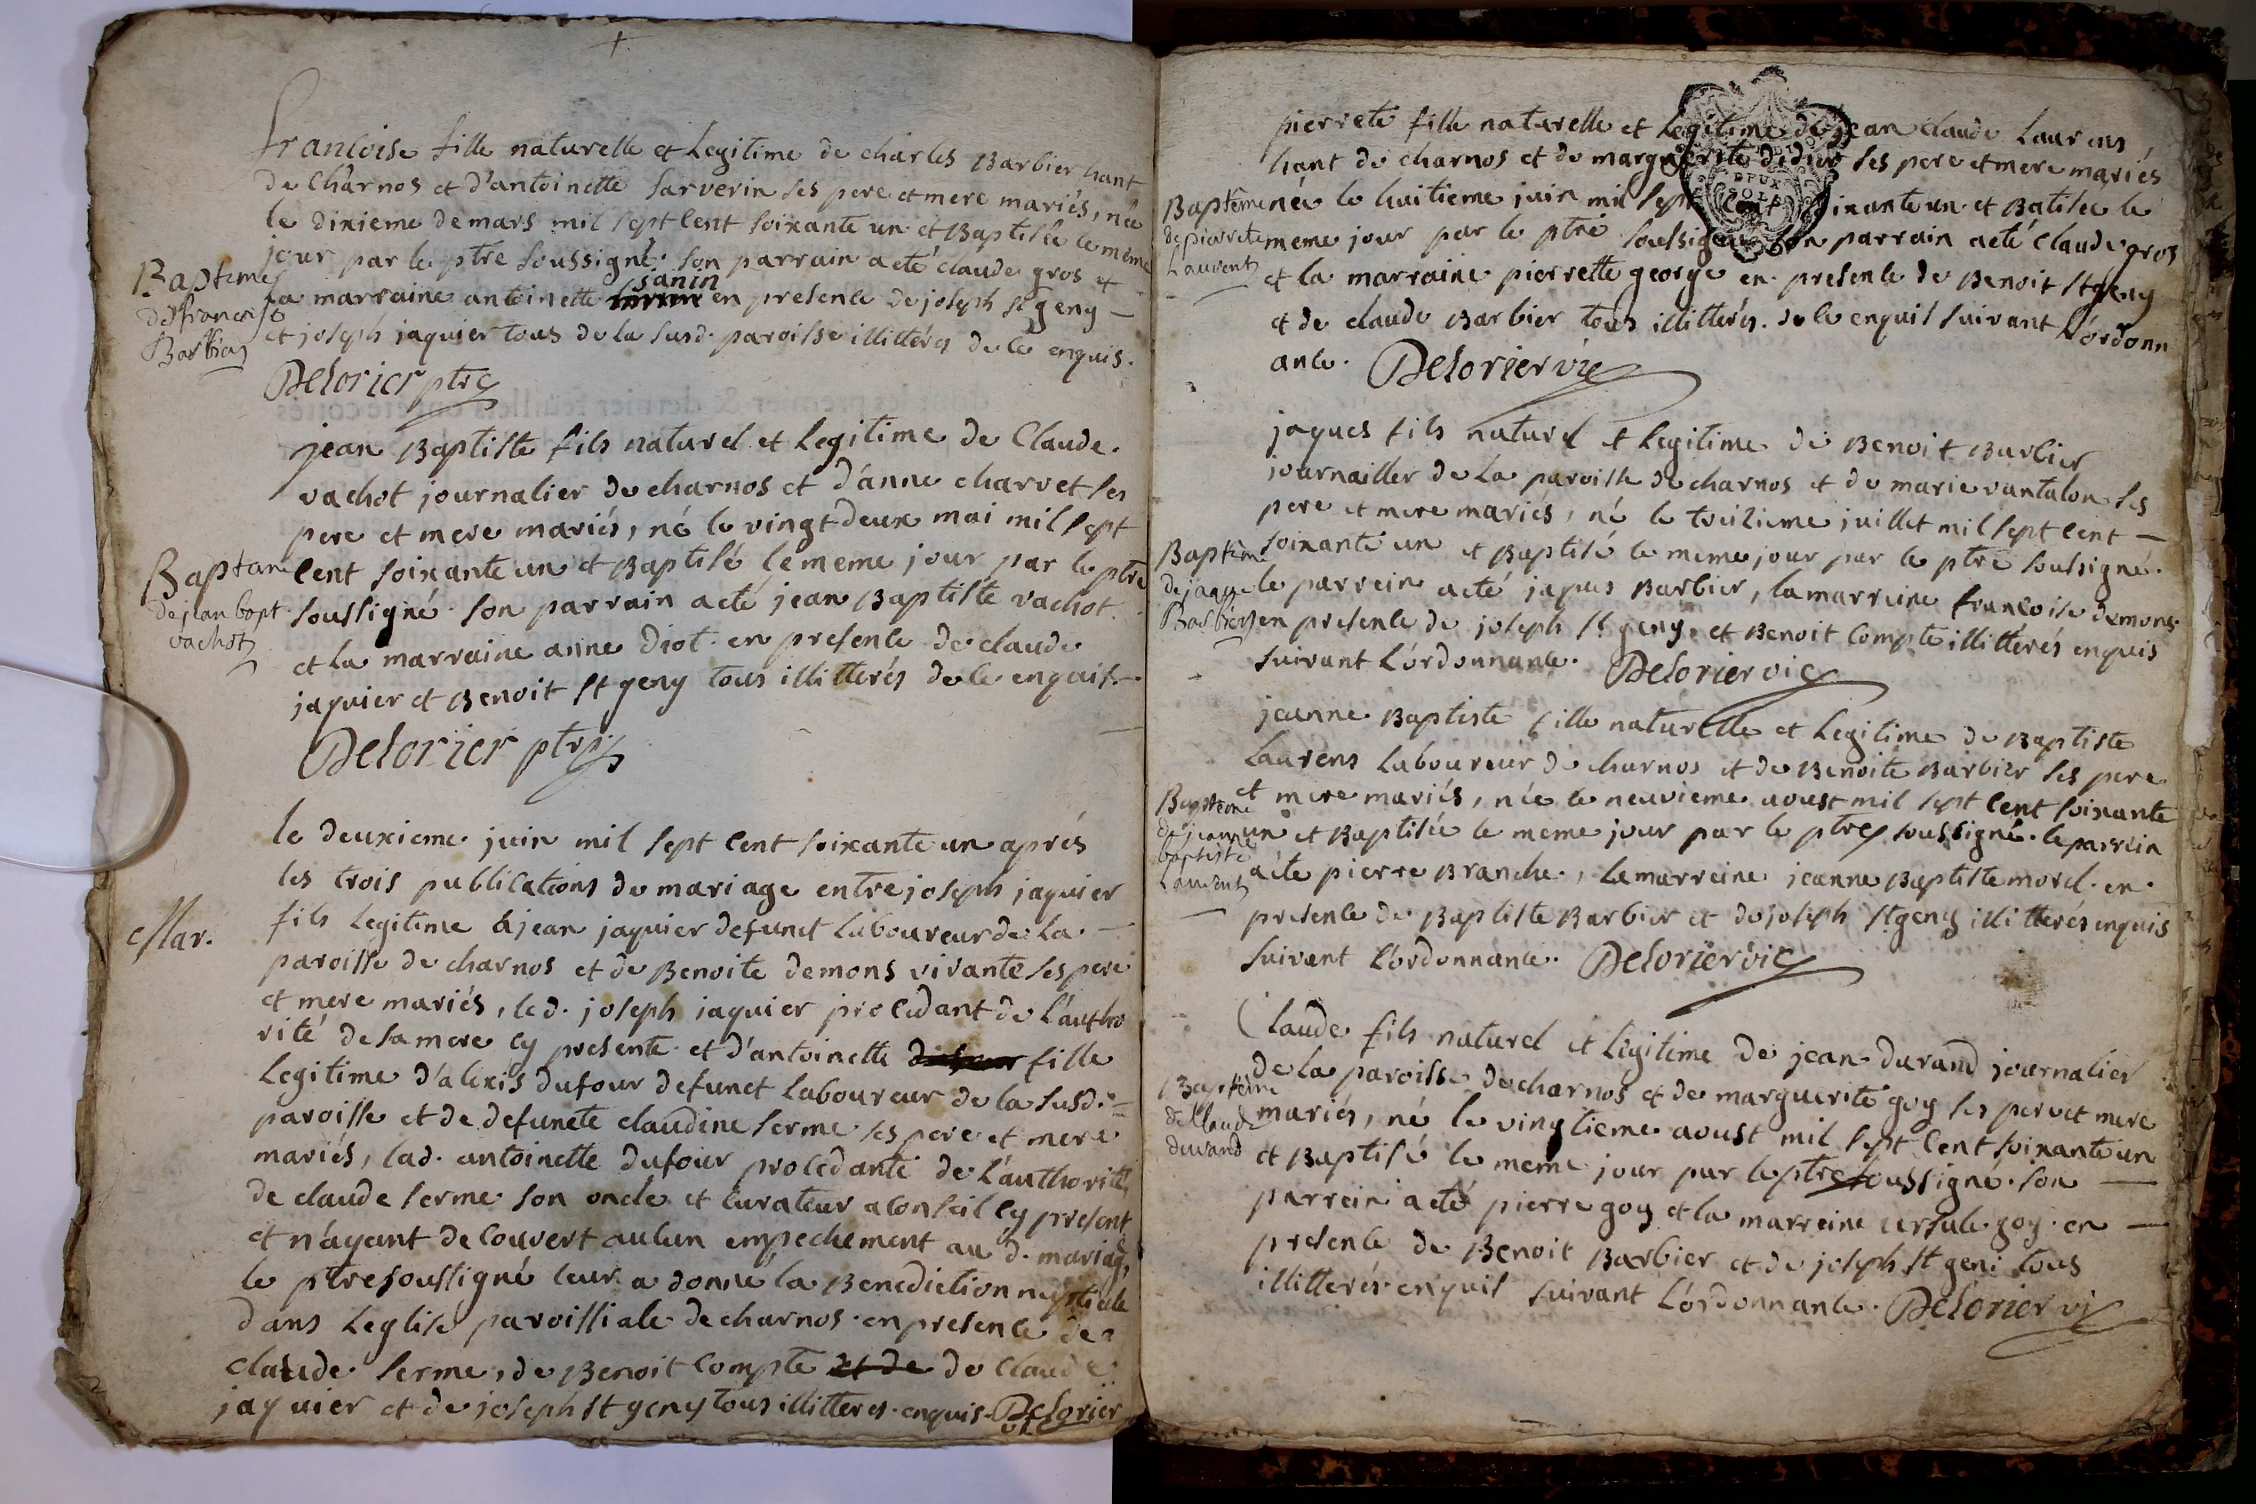 francoise fille naturelle et Legitime de charles Barbier hant
de Charnos et d'antoinette sarverin ses pere et mere mariés, née
le dixieme de mars mil sept Cent soixante un et Baptisée le meme
jour par le ptre soussigné. son parrain a eté claude gros et
la marraine antoinette sanin en presence de joseph st geny
et joseph jaquier tous de la susd. paroisse illittérés de ce enquis.
Bapteme
de francoise
Barbier
Delorier ptre
jean Baptiste fils naturel et Legitime de Claude
vachot journalier de charnos et d'anne charvet ses
pere et mere mariés, né le vingt deux mai mil sept
Cent soixante un et Baptisé le meme jour par le ptre
soussigné. son parrain a eté jean Baptiste vachot.
et la marraine anne Diot. en presence de claude
jaquier et Benoit st geny tous illitterés de ce enquis.
Baptane
de jean bapt.
vachot
Delorier ptre
le deuxieme juin mil sept cent soixante un aprés
les trois publications de mariage entre joseph jaquier
fils Legitime à jean jaquier defunct Laboureur de La
paroisse de charnos et de Benoite demons vivante ses pere
et mere mariés, led. joseph jaquier procedant de L'autho
rité de sa mere cy presente et d'antoinette fille
Legitime d'alexis dufour defunct Laboureur de la susd.
paroisse et de defuncte claudine serme ses pere et mere
mariés, lad. antoinette dufour procédante de L'authorité
de claude serme son oncle et curateur a conseil cy present
et n'ayant decouvert aucun empechement au d. mariag,
le ptre soussigné leur a donné la Benediction nuptiale
dans L'eglise paroissiale de charnos en presence de
claude serme, de Benoit Compte et de de Claude
jaquier et de joseph st geny tous illitteres enquis Delorier
vic
Mar.
pierrete fille naturelle et Legitime de jean claude Laurens
hant de charnos et de marguerite didier ses pere et mere mariés
née le huitieme juin mil sept Cent soixante un et Batisée le
meme jour par le ptre soussigné son parrain a eté Claude gros
et la marraine pierrette george en presence de Benoit st geny
et de claude Barbier tous illitterés. de ce enquis suivant L'ordonn
ance. Delorier vic
Baptême
de pierrete
Laurent
DEUX
SOLS
jaques fils naturel et Legitime de Benoit Barbier
journailler de La paroisse de charnos et de marie vantalon ses
pere et mere mariés, né le treizieme juillet mil sept cent
soixante un et Baptisé le meme jour par le ptre soussigné.
le parrein a eté jaques Barbier, la marreine francoise demons
en presence de joseph st geny, et Benoit Compte illittérés enquis
suivant L'ordonnance. Delorier vic
Baptême
de jaque
Barbier
jeanne Baptiste fille naturelle et Legitime de Baptiste
Laurens Laboureur de charnos et de Benoite Barbier ses pere
et mere mariés, née le neuvieme aoust mil sept cent soixante
un et Baptisée le meme jour par le ptre soussigné. le parrein
a éte pierre Branche, la marreine jeanne Baptiste morel. en
presence de Baptiste Barbier et de joseph st geny illitterés enquis
suivant L'ordonnance. Delorier vic
Bapteme
de jeanne
baptiste
Laurent
Claude fils naturel et Legitime de jean durand journalier
de la paroisse de charnos et de marguerite goy ses pere et mere
mariés, né le vingtieme aoust mil sept cent soixante un
et Baptisé le meme jour par le ptre soussigné. son
parrein a eté pierre goy et la marreine ursule goy. en
presence de Benoit Barbier et de joseph st geni tous
illitterés enquis suivant L'ordonnance. Delorier vi
Bapteme
de Claude
durand